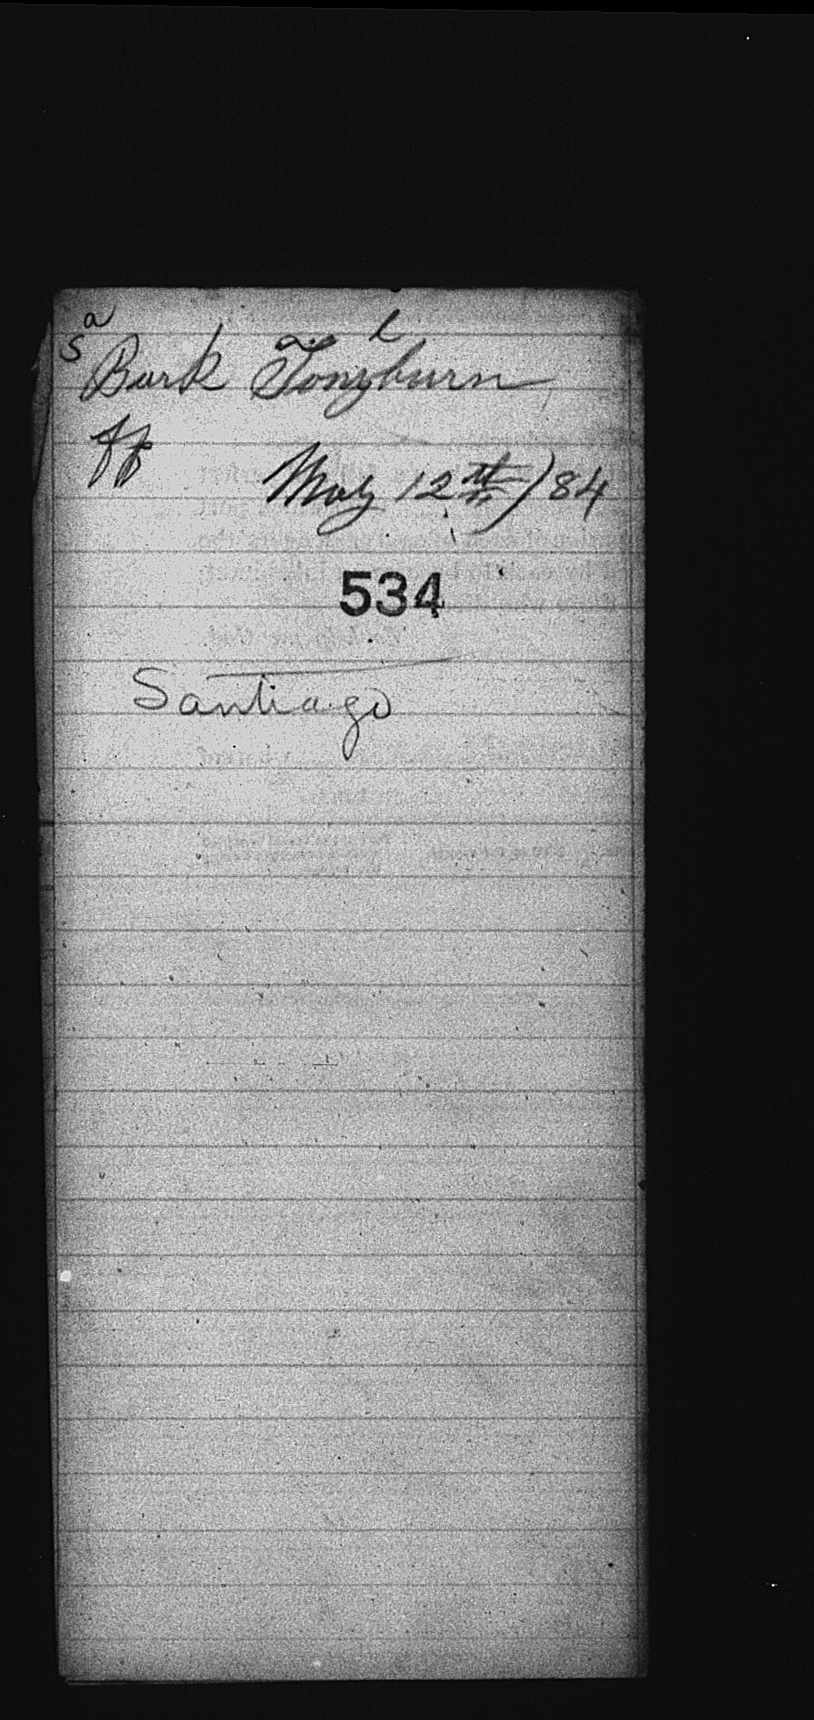 a l
S Bark Tonyburn
May 12th / 84
534
Santiago